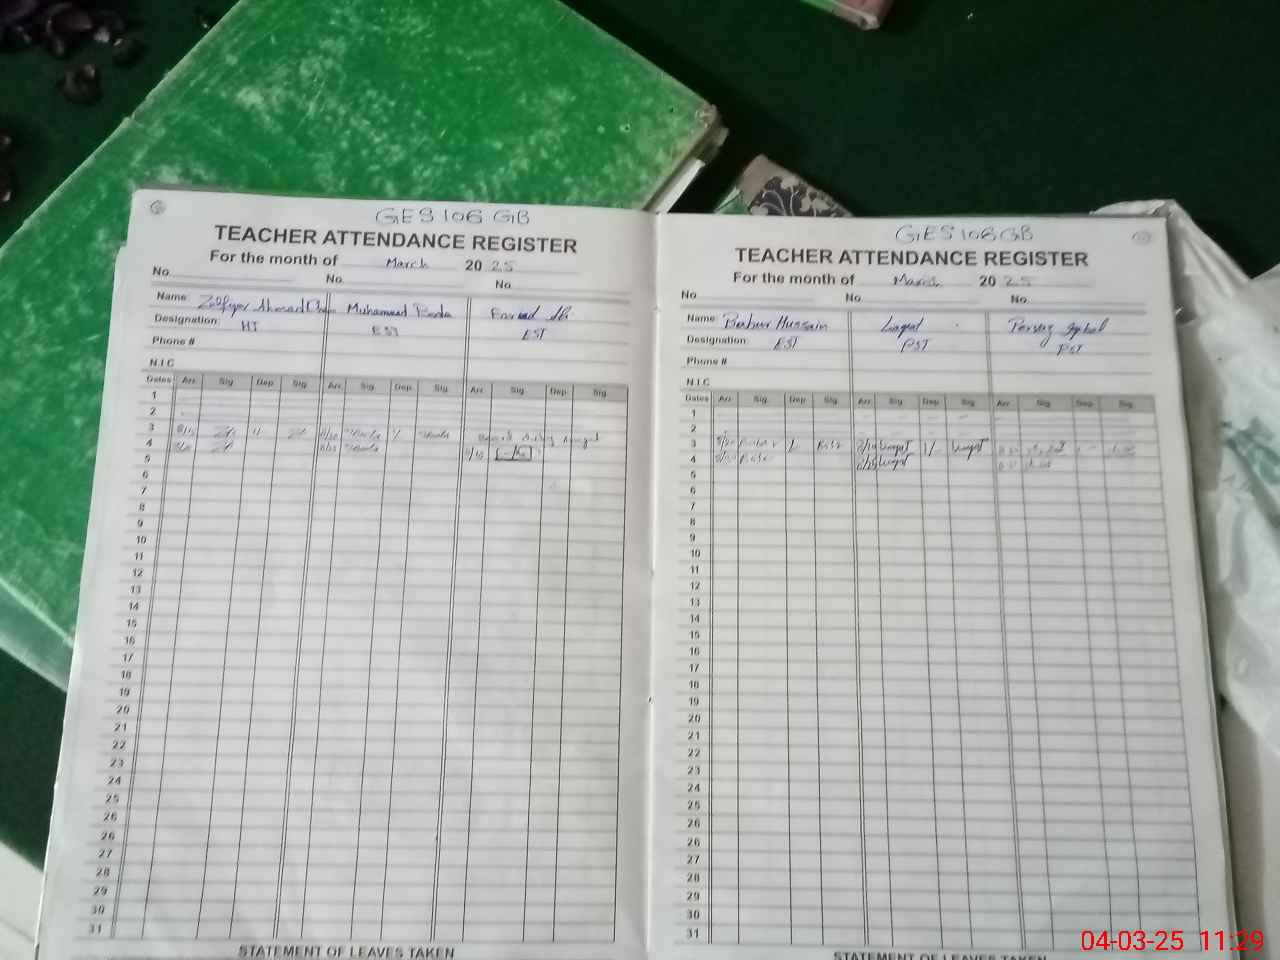 GES 106 GB
TEACHER ATTENDANCE REGISTER
For the month of March 20 25
No. No. No.
Name: Zulfiqar Ahmad Khan Muhammad
Designation: HT EST EST
Phone #
N.I.C
Dates Arr. Sig. Dep. Sig. Arr. Sig. Dep. Sig. Arr. Sig. Dep. Sig.
1
2
3
4
5
6
7
8
9
10
11
12
13
14
15
16
17
18
19
20
21
22
23
24
25
26
26
27
28
29
30
31
STATEMENT OF LEAVES TAKEN
GES 106 GB
TEACHER ATTENDANCE REGISTER
For the month of March 20 25
No. No. No.
Name: Babur Hussain Liaqat Pervaiz Iqbal
Designation: EST PST PST
Phone #
N.I.C
Dates Arr. Sig. Dep. Sig. Arr. Sig. Dep. Sig. Arr. Sig. Dep. Sig.
1
2
3
4
5
6
7
8
9
10
11
12
13
14
15
16
17
18
19
20
21
22
23
24
25
26
26
27
28
29
30
31
STATEMENT OF LEAVES TAKEN
04-03-25 11:29